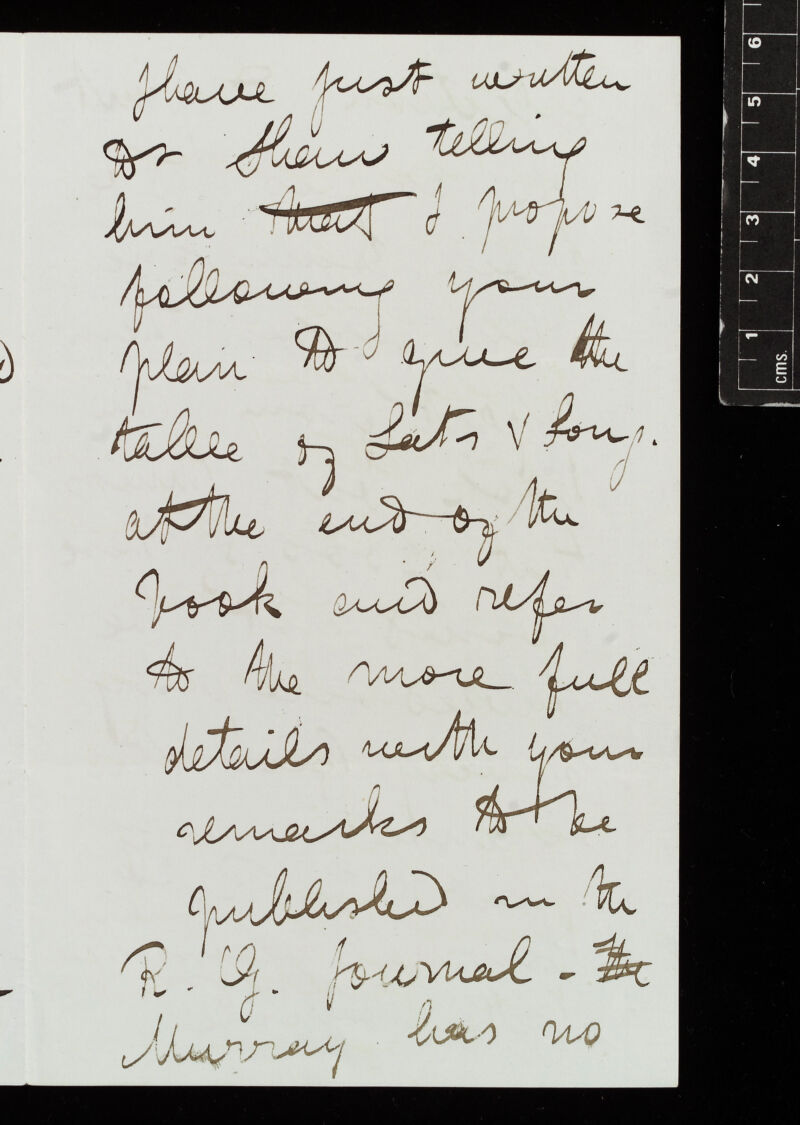 I have just written
Dr Shaw telling
him that I propose
following your
plan to give the
table of Lats & Long.
at the end of the
book and refer
to the more full
details with your
remarks to be
published in the
R. G. Journal - The
Murray has no
1 2 3 4 5 6
cms.